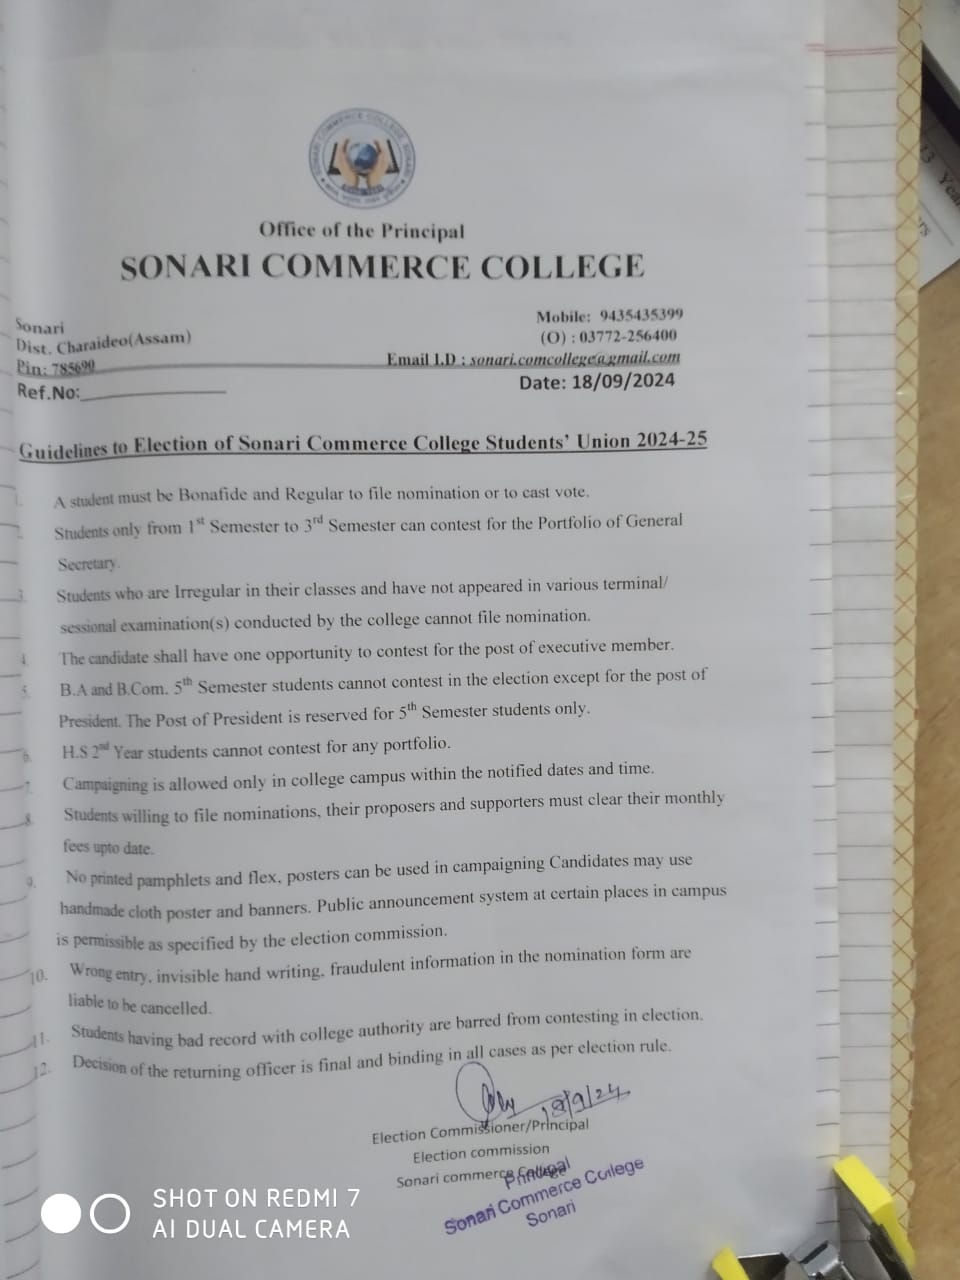 SONARI COMMERCE COLLEGE, SONARI
Office of the Principal
SONARI COMMERCE COLLEGE
Sonari
Dist. Charaideo(Assam)
Pin: 785690
Ref.No:
Mobile: 9435435399
(O) : 03772-256400
Email I.D : sonari.comcollege@gmail.com
Date: 18/09/2024
Guidelines to Election of Sonari Commerce College Students' Union 2024-25
1. A student must be Bonafide and Regular to file nomination or to cast vote.
2. Students only from 1st Semester to 3rd Semester can contest for the Portfolio of General
Secretary.
3. Students who are Irregular in their classes and have not appeared in various terminal/
sessional examination(s) conducted by the college cannot file nomination.
4. The candidate shall have one opportunity to contest for the post of executive member.
5. B.A and B.Com. 5th Semester students cannot contest in the election except for the post of
President. The Post of President is reserved for 5th Semester students only.
6. H.S 2nd Year students cannot contest for any portfolio.
7. Campaigning is allowed only in college campus within the notified dates and time.
8. Students willing to file nominations, their proposers and supporters must clear their monthly
fees upto date.
9. No printed pamphlets and flex, posters can be used in campaigning Candidates may use
handmade cloth poster and banners. Public announcement system at certain places in campus
is permissible as specified by the election commission.
10. Wrong entry, invisible hand writing, fraudulent information in the nomination form are
liable to be cancelled.
11. Students having bad record with college authority are barred from contesting in election.
12. Decision of the returning officer is final and binding in all cases as per election rule.
18/9/24
Election Commissioner/Principal
Election commission
Sonari commerce College
Principal
Sonari Commerce College
Sonari
SHOT ON REDMI 7
AI DUAL CAMERA